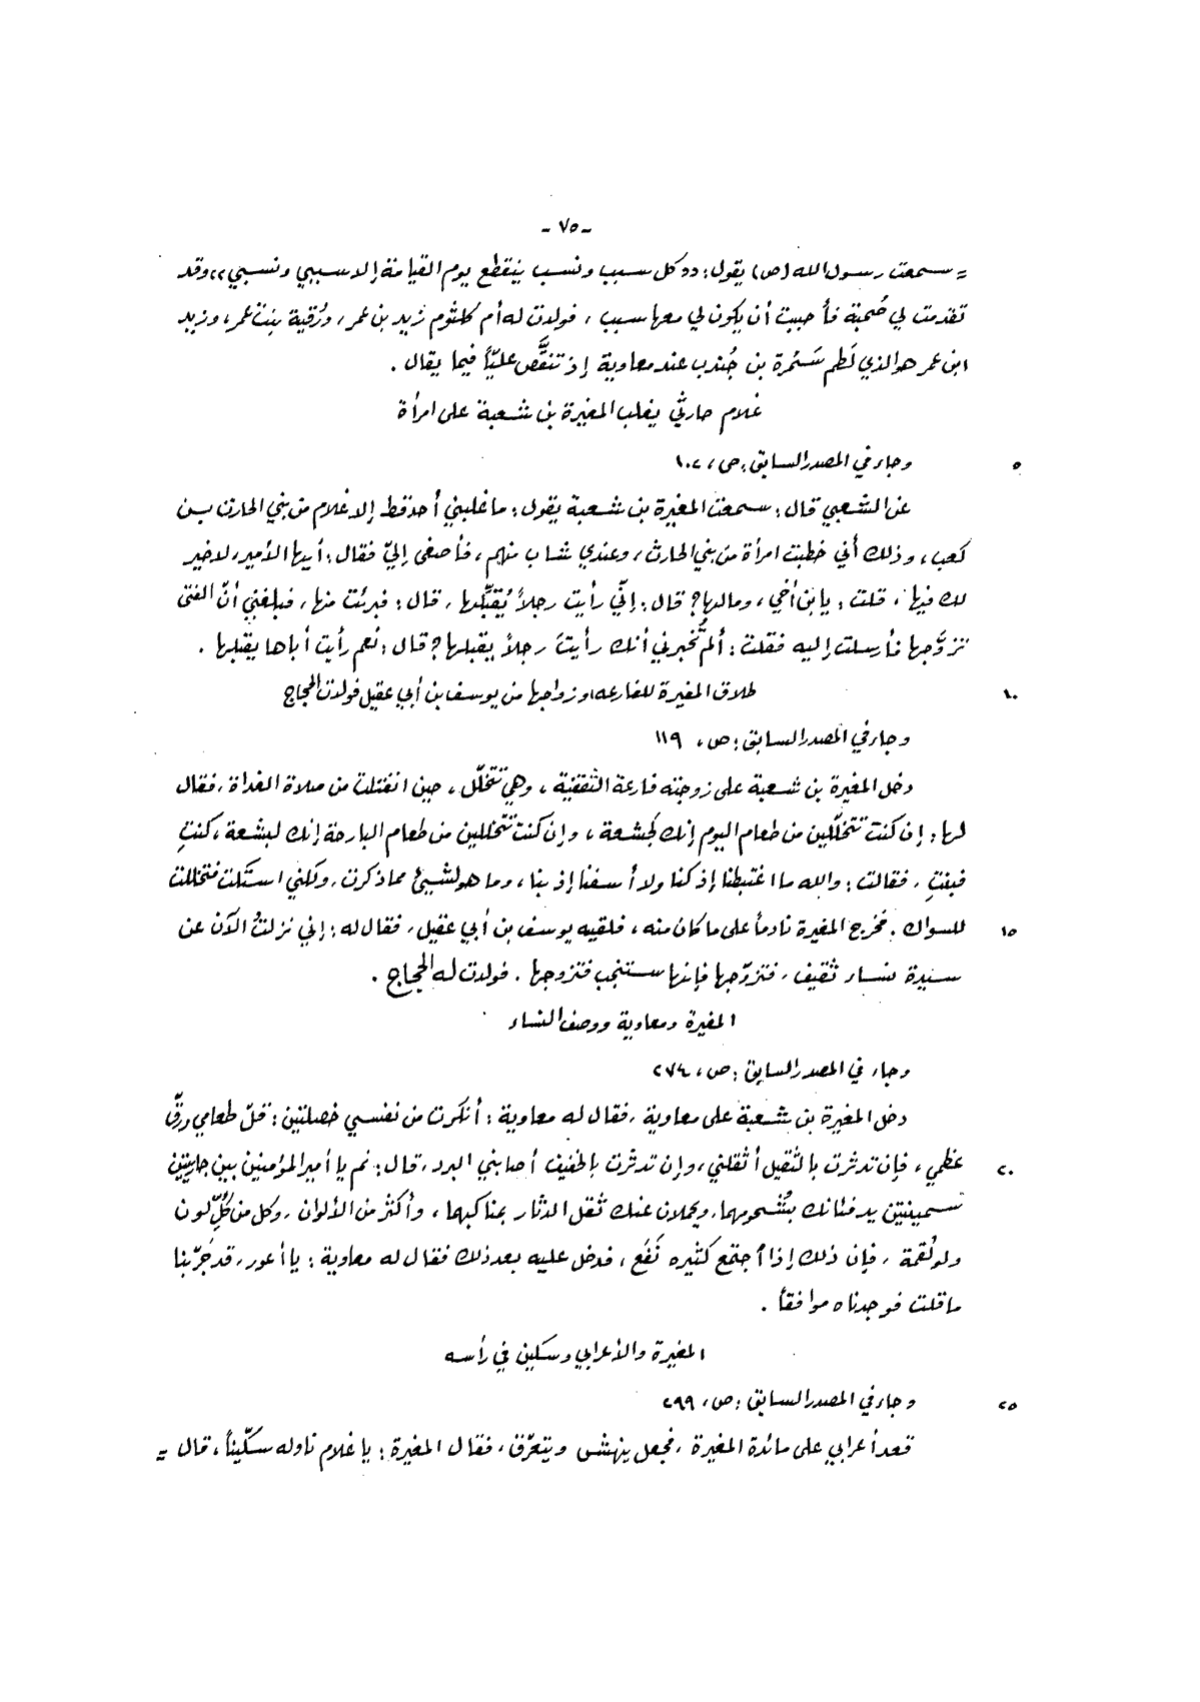 - ٧٥ -
= سمعت رسول الله (ص) يقول: «كل سبب ونسب ينقطع يوم القيامة إلا سببي ونسبي» وقد
تقدمت لي صُحبة فأحببت أن يكون لي معها سبب ، فولدت له أم كلثوم زيد بن عمر، ورُقية بنت عمر، وزيد
ابن عمر هو الذي لَطم سَمُرة بن جُندب عند معاوية إذ تنقَّص عليّاً فيما يقال .
غلام حارثيّ يغلب المغيرة بن شعبة على امرأة
٥ وجاء في المصدر السابق: ص، ١٠٢
عن الشعبي قال : سمعت المغيرة بن شعبة يقول: ما غلبني أحد قط إلا غلام من بني الحارث بن
كعب ، وذلك أني خطبت امرأة من بني الحارث، وعندي شاب منهم ، فأصغى إليّ فقال : أيها الأمير، لا خير
لك فيها ، قلت : يا بن أخي، ومالها؟ قال : إنّي رأيت رجلاً يُقبِّلها ، قال : فبرئت منها، فبلغني أنّ الفتى
تزوَّجها فأرسلت إليه فقلت : ألم تُخبرني أنك رأيتَ رجلاً يقبلها؟ قال : نعم رأيت أباها يقبلها .
١٠ طلاق المغيرة للفارعه، وزواجها من يوسف بن أبي عقيل فولدت الحجاج
وجاء في المصدر السابق : ص، ١١٩
دخل المغيرة بن شعبة على زوجته فارعة الثقفية ، وهي تتخلّل ، حين انفتلت من صلاة الغداة ، فقال
لها : إن كنت تتخلّلين من طعام اليوم إنك لجشعة ، وإن كنت تتخللين من طعام البارحة إنك لبشعة ، كنتِ
فبنتِ ، فقالت : والله ما اغتبطنا إذ كنا ولا أسفنا إذ بنا ، وما هو لشيئ مما ذكرت ، ولكني استكلت فتخللت
١٥ للسواك . فخرج المغيرة نادماً على ما كان منه ، فلقيه يوسف بن أبي عقيل ، فقال له : إني نزلتُ الآن عن
سيدة نساء ثقيف ، فتزوّجها فإنها ستنجب فتزوجها . فولدت له الحجاج .
المغيرة ومعاوية ووصف النساء
وجاء في المصدر السابق : ص، ٢٧٤
دخل المغيرة بن شعبة على معاوية ، فقال له معاوية : أنكرت من نفسي خصلتين : قلّ طعامي ورقّ
٢٠ عظمي ، فإن تدثرت بالثقيل أثقلني ، وإن تدثرت بالخفيف أصابني البرد ، قال : نم يا أمير المؤمنين بين جاريتين
سمينتين يدفئانك بشُحومهما، ويحملان عنك ثقل الدثار بمناكبهما ، وأكثر من الألوان ، وكل من كُلّ لون
ولو لُقمة ، فإن ذلك إذا اجتمع كثيره نَفَع ، فدخل عليه بعد ذلك فقال له معاوية : يا أعور ، قد جَرّبنا
ما قلت فوجدناه موافقاً .
المغيرة والأعرابي وسكين في رأسه
٢٥ وجاء في المصدر السابق : ص، ٢٩٩
قعد أعرابي على مائدة المغيرة ، فجعل ينهش ويتعرّق ، فقال المغيرة : يا غلام ناوله سكّيناً ، قال =